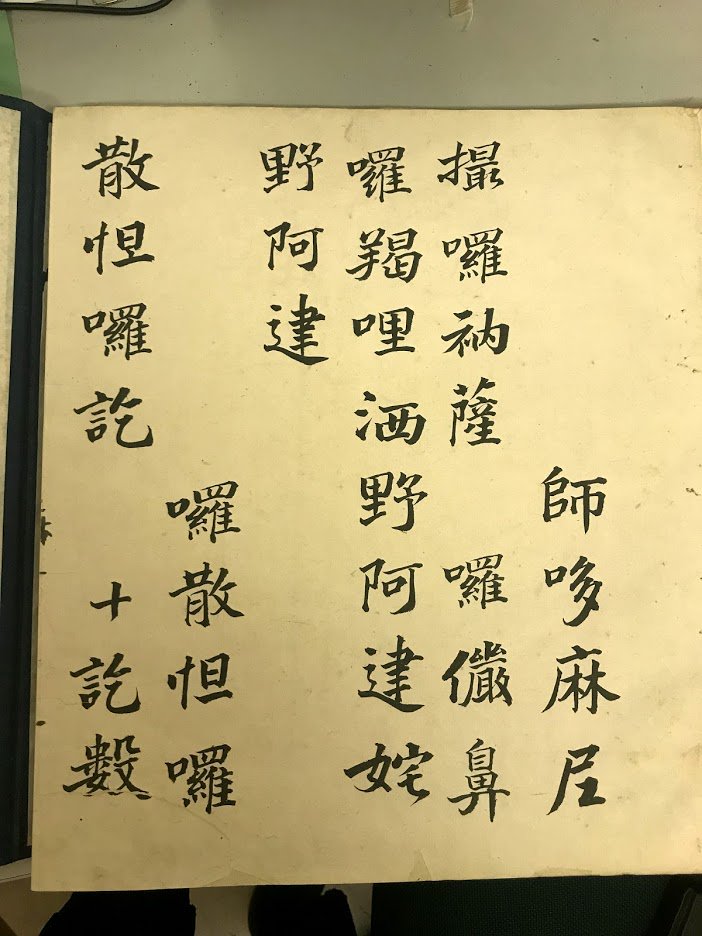 師哆麻尼
撮囉衲薩　囉儼鼻
囉羯哩洒野阿建姹
野阿建
囉散怛囉
散怛囉訖　十訖數